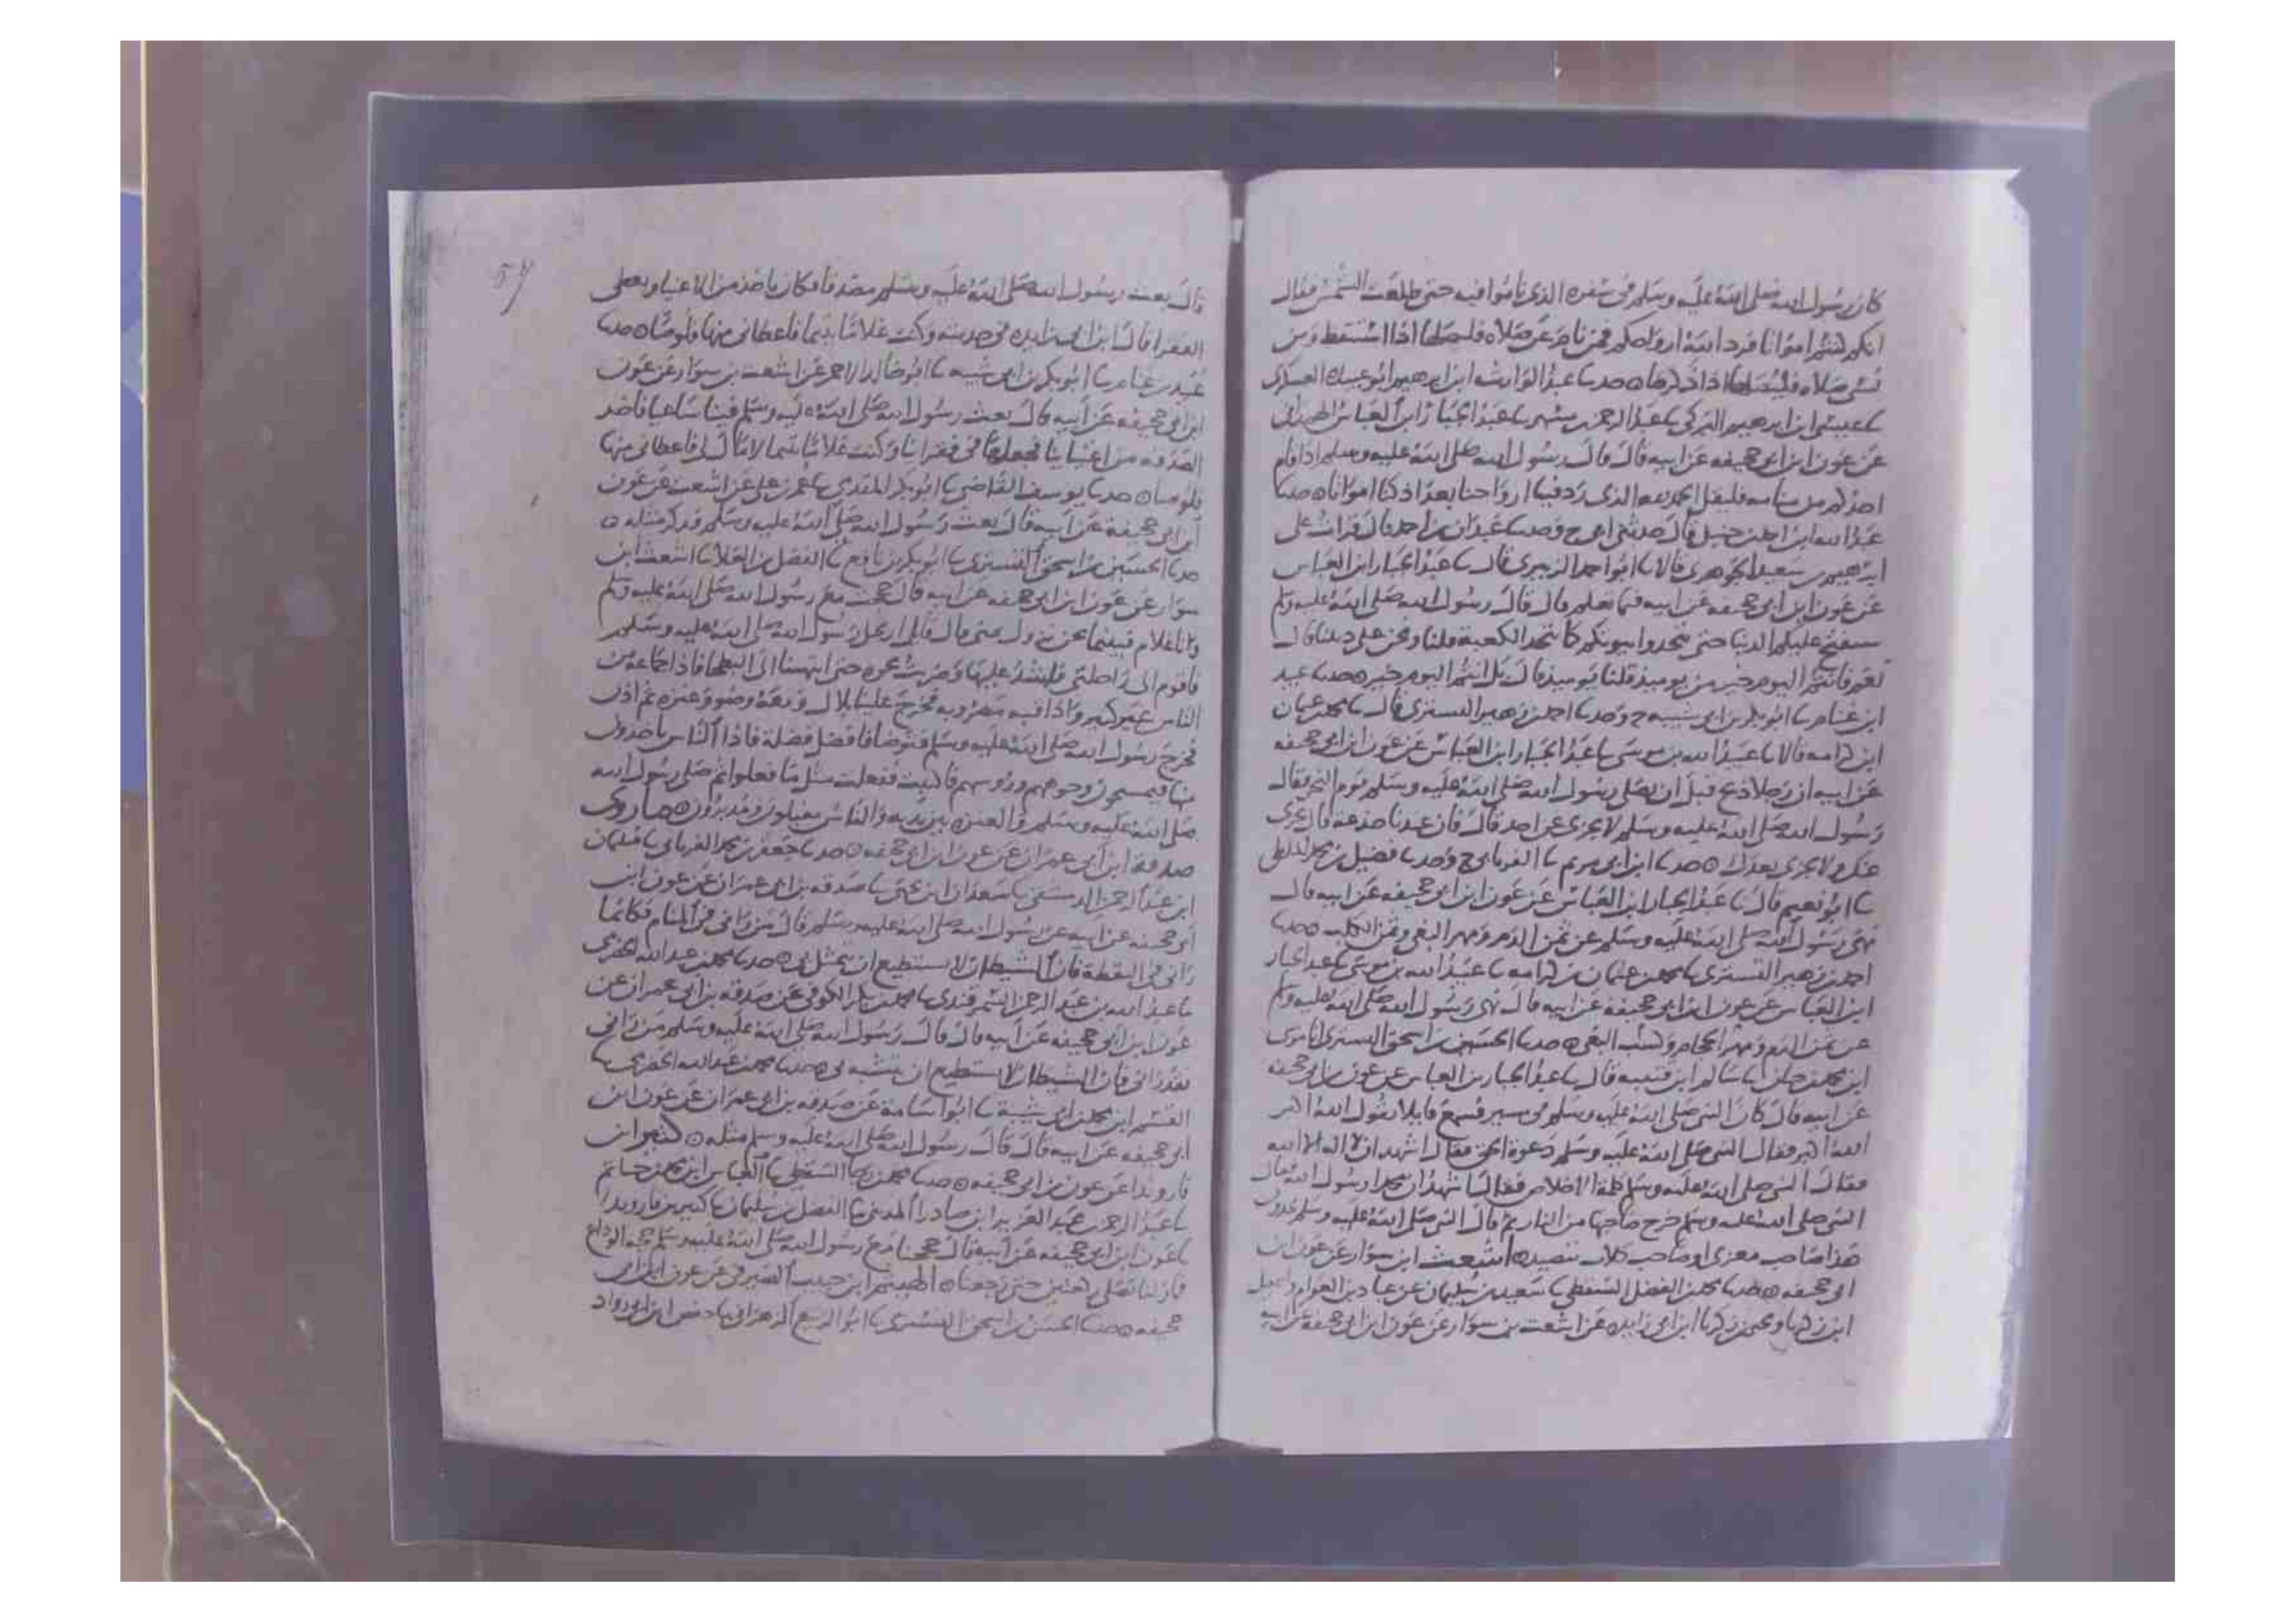 كان رسول الله صلى الله عليه وسلم في سفره الذي ناموا فيه حتى طلعت الشمس فقال
انكم كنتم امواتا فرد الله ارواحكم فمن نام عن صلاه فليصلها اذا استيقظ ومن
نسي صلاه فليصلها اذا ذكرها ه حدثنا عبد الوارث ابن ابرهيم ابو عبيده العسكرى
عيسى ابن ابرهيم البركي عبد الرحمن مسهر عبد الجبار ابن العباس الهمداني
عن عون ابن ابي جحيفه عن ابيه قال قال رسول الله صلى الله عليه وسلم اذا قام
احدكم من منامه فليقل الحمد لله الذي رد فينا ارواحنا بعد اذ كنا امواتا ه حدثنا
عبد الله ابن احمد بن حنبل قال حدثني ابي ح وحدثنا عبدان بن احمد قال قرات على
ابرهيم بن سعيد الجوهري قالا ابو احمد الزبيري قال عبد الجبار ابن العباس
عن عون ابن ابي جحيفه عن ابيه فيما نعلم قال قال رسول الله صلى الله عليه وسلم
ستفتح عليكم الدنيا حتى تنجدوا بيوتكم كما تنجد الكعبة قلنا ونحن على ديننا قال
نعم فانتم اليوم خير من يوميذ قلنا يوميذ قال بل انتم اليوم خير ه حدثنا عبيد
ابن غنام ابو بكر بن ابي شيبه ح وحدثنا احمد بن زهير التستري قال محمد بن عثمان
ابن كرامه قالا عبيد الله بن موسى عبد الجبار ابن العباس عن عون ابن ابي جحيفه
عن ابيه ان رجلا ذبح قبل ان يصلى رسول الله صلى الله عليه وسلم يوم النحر فقال
رسول الله صلى الله عليه وسلم لا يجزى عن احد قال فان عندنا جذعة قال يجزى
عنك ولا يجزى بعدك ه حدثنا ابن ابي مريم الفريابي ح وحدثنا فضيل بن محمد الملطي
ابو نعيم قال عبد الجبار ابن العباس عن عون ابن ابي جحيفه عن ابيه قال
نهى رسول الله صلى الله عليه وسلم عن ثمن الدم ومهر البغي وثمن الكلب ه حدثنا
احمد بن زهير التستري محمد بن عثمان بن كرامه عبيد الله بن موسى عبد الجبار
ابن العباس عن عون ابن ابي جحيفه عن ابيه قال نهى رسول الله صلى الله عليه وسلم
عن ثمن الدم ومهر الحجام وكسب البغي ه حدثنا الحسين بن اسحق التستري
ابن قتيبه قال عبد الجبار بن العباس عن عون بن ابي جحيفه
عن ابيه قال كان النبي صلى الله عليه وسلم في مسير فسمع قايلا يقول الله اكبر
الله اكبر فقال النبي صلى الله عليه وسلم دعوة الحق فقال اشهد ان لا اله الا الله
فقال النبي صلى الله عليه وسلم كلمة الاخلاص فقال اشهد ان محمدا رسول الله فقال
النبي صلى الله عليه وسلم خرج صاحبها من النار ثم قال النبي صلى الله عليه وسلم
هذا صاحب معزى او صاحب كلاب تصيد ه اشعث ابن سوار عن عون ابن
ابي جحيفه ه حدثنا محمد بن الفضل السقطي سعيد بن سليمان عن عباد بن العوام واسمعيل
ابن زكريا ويحيى بن زكريا ابن ابي زايده عن اشعث بن سوار عن عون ابن ابي جحيفه عن ابيه
57
قال بعث رسول الله صلى الله عليه وسلم مصدقا فكان ياخذ من الاغنيا ويعطى
الفقرا قال ابن ابي زايده في حديثه وكنت غلاما يتيما فاعطاني منها قلوصا ه حدثنا
عبيد بن غنام ابو بكر بن ابي شيبه ابو خالد الاحمر عن اشعث بن سوار عن عون
ابن ابي جحيفه عن ابيه قال بعث رسول الله صلى الله عليه وسلم فينا ساعيا فاخذ
الصدقه من اغنيائنا فجعلها في فقرائنا وكنت غلاما يتيما لا مال لي فاعطاني منها
قلوصا ه حدثنا يوسف القاضي ابو بكر المقدمي عمر بن علي عن اشعث عن عون
ابن ابي جحيفة عن ابيه قال بعث رسول الله صلى الله عليه وسلم فذكر مثله ه
حدثنا الحسين بن اسحق التستري ابو بكر بن نافع الفضل بن العلا اشعث ابن
سوار عن عون ابن ابي جحيفه عن ابيه قال حججت مع رسول الله صلى الله عليه وسلم
وانا غلام فبينما نحن نزول بمنى قال
فاقوم الى راحلتي حتى انتهينا الى البطحا فاذا جماعة من
الناس غير كثير واذا قبه مضروبه فخرج علينا بلال ومعه وضوء وعنزه ثم اذن
فخرج رسول الله صلى الله عليه وسلم فتوضا فافضل فضلة فاذا الناس ياخذون
منها فيمسحون وجوههم ورؤسهم ففعلت مثل ما فعلوا ثم صلى رسول الله
صلى الله عليه وسلم والعنزه بين يديه والناس مقبلون ومدبرون ه ما روى
صدقه ابن ابي عمران عن عون ابن ابي جحيفه ه حدثنا جعفر بن محمد الفريابي سليمان
ابن عبد الرحمن الدمشقي سعدان ابن يحيى صدقه بن ابي عمران عن عون ابن
ابي جحيفه عن ابيه عن رسول الله صلى الله عليه وسلم قال من راني في المنام فكانما
راني في اليقظة فان الشيطان لا يستطيع ان يتمثل بي ه حدثنا محمد بن عبد الله الحضرمي
عبد الله بن عبد الرحمن السمرقندي محمد بن بكر الكوفي عن صدقه بن ابي عمران عن
عون ابن ابي جحيفه عن ابيه قال قال رسول الله صلى الله عليه وسلم من راني
فقد راني فان الشيطان لا يستطيع ان يتشبه بي ه حدثنا محمد بن عبد الله الحضرمي
القسم ابن محمد بن ابي شيبة ابو اسامة عن صدقه بن ابي عمران عن عون ابن
ابي جحيفه عن ابيه قال قال رسول الله صلى الله عليه وسلم مثله ه كثير ابن
قاروندا عن عون بن ابي جحيفه ه حدثنا محمد بن السقطي العباس ابن حاتم
عبد الرحمن عبد العزيز ابن صادرا المديني الفضل بن سليمان كثير بن قاروندا
عون ابن ابي جحيفه عن ابيه قال حججنا مع رسول الله صلى الله عليه وسلم حجة الوداع
فما زلنا نصلي ركعتين حتى رجعنا ه الهيثم ابن حبيب الصيرفي عن عون ابن ابي
جحيفه ه حدثنا الحسين بن اسحق التستري ابو الربيع الزهراني حفص ابن ابي داود